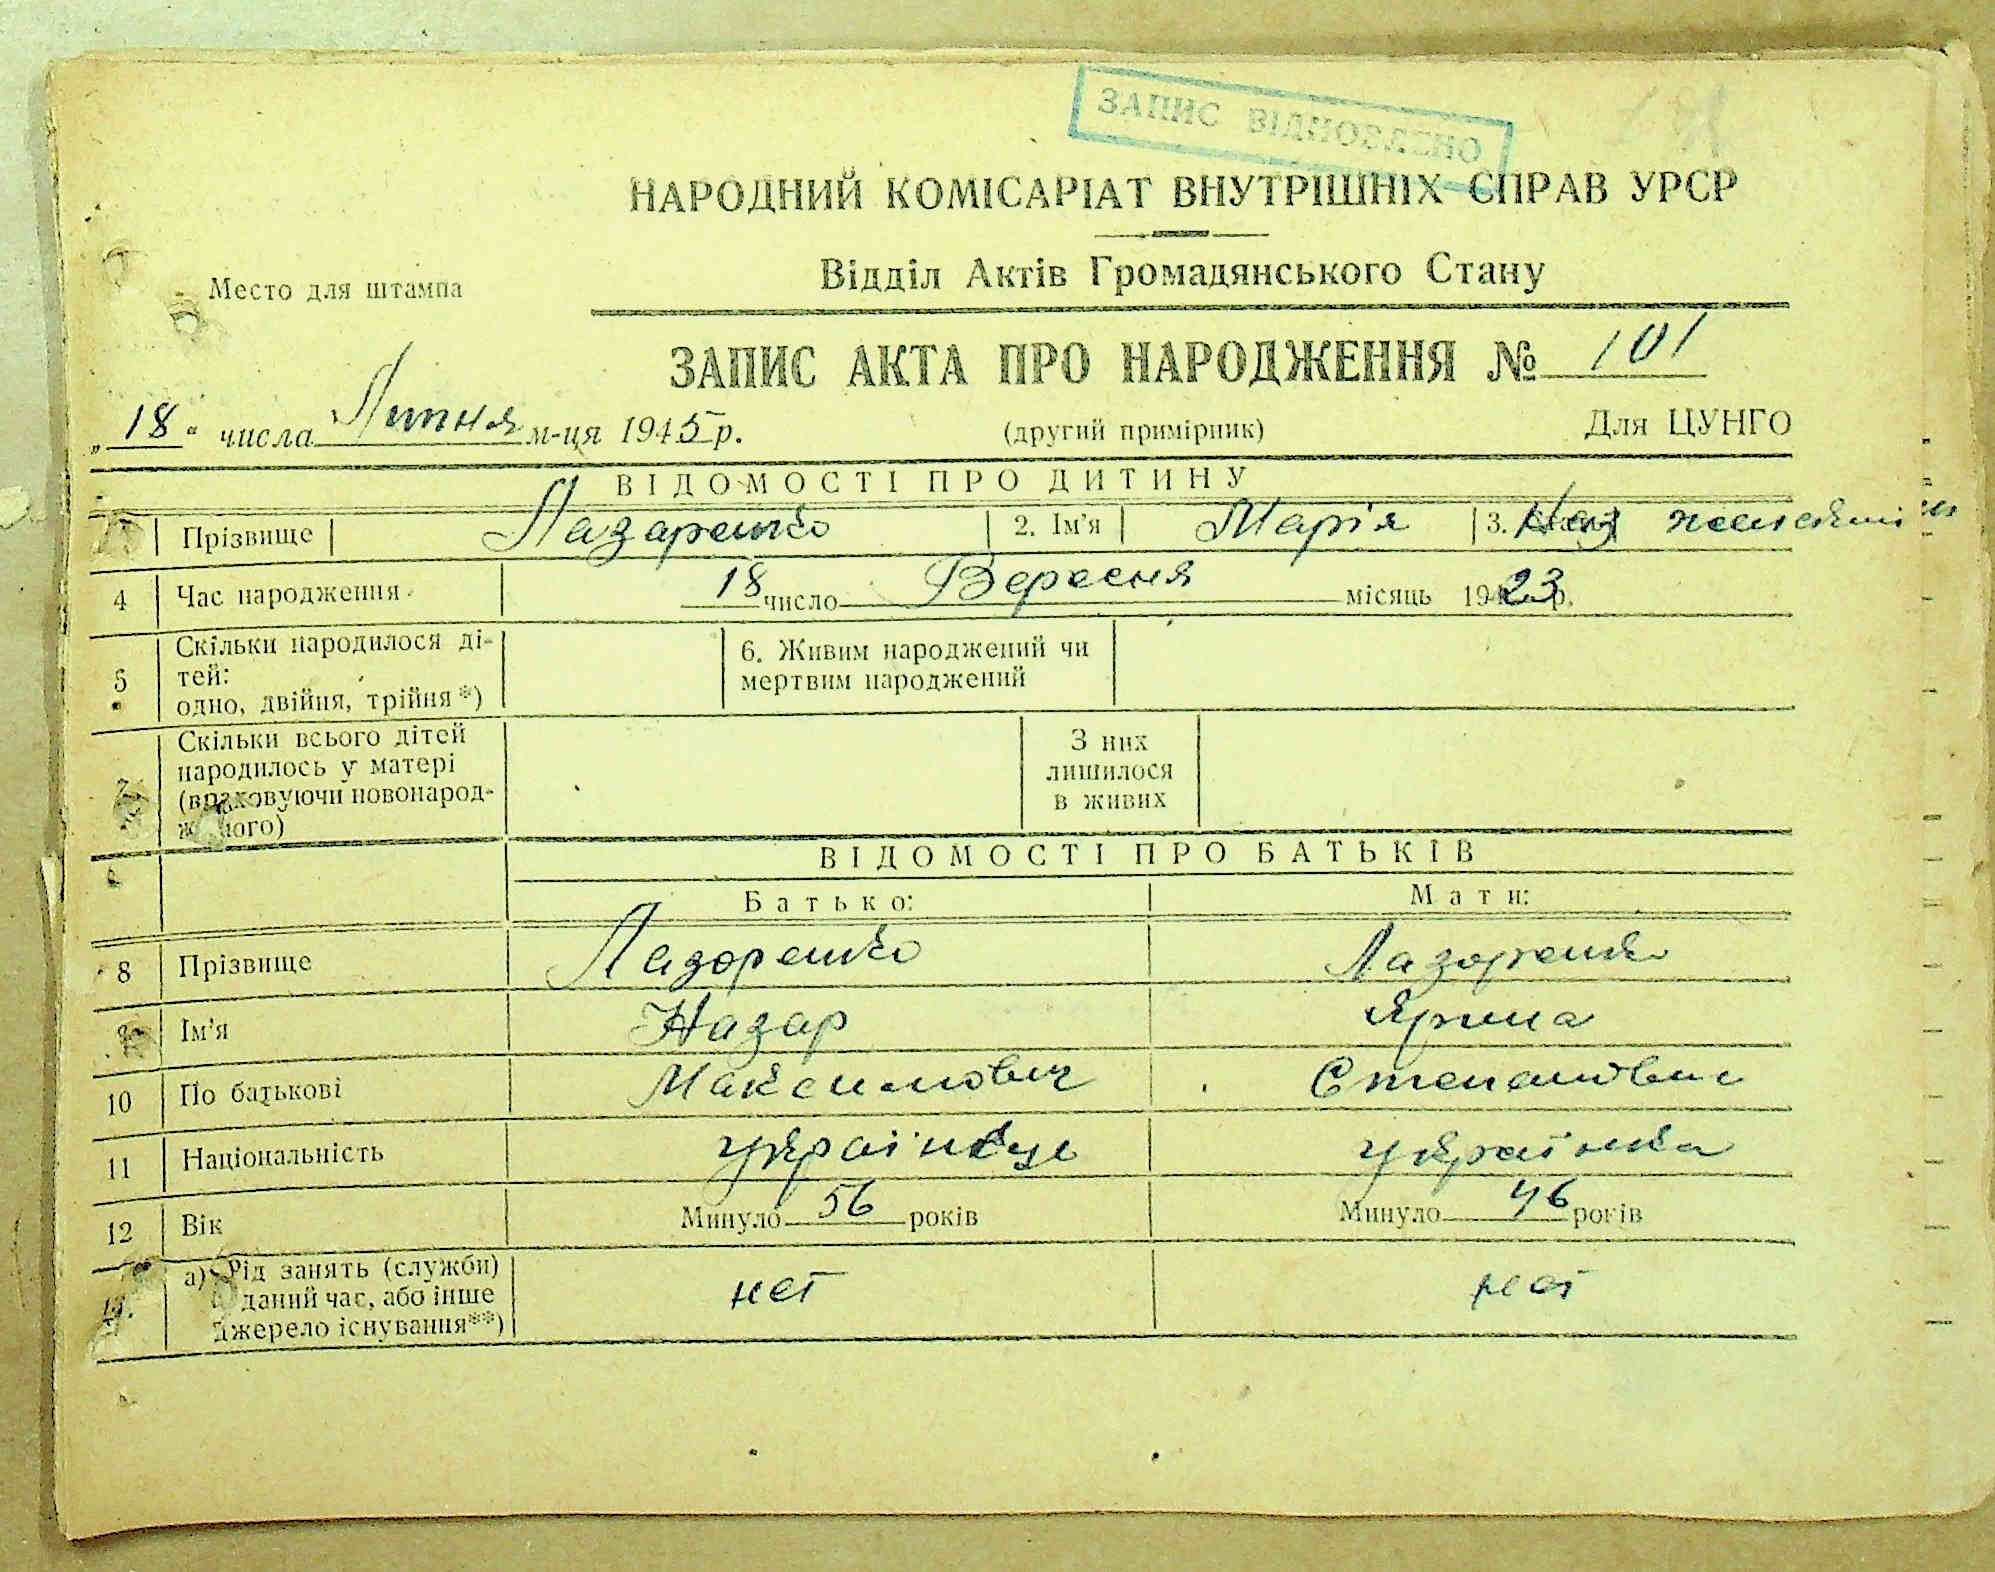 ЗАПИС ВІДНОВЛЕНО
НАРОДНИЙ КОМІСАРІАТ ВНУТРІШНІХ СПРАВ УРСР
Відділ Актів Громадянського Стану
Место для штампа
ЗАПИС АКТА ПРО НАРОДЖЕННЯ № 101
„18“ числа Липня м-ця 1945 р.
(другий примірник)
Для ЦУНГО
ВІДОМОСТІ ПРО ДИТИНУ
Прізвище Лазаренко 2. Ім’я Марія 3.
4 Час народження 18 число Вересня місяць 1923 р.
5 Скільки народилося ді-
тей:
одно, двійня, трійня*)
6. Живим народжений чи
мертвим народжений
Скільки всього дітей
народилось у матері
(враховуючи новонарод-
женого)
З них
лишилося
в живих
ВІДОМОСТІ ПРО БАТЬКІВ
Батько: Мати:
8 Прізвище Лазоренко Лазоренко
Ім’я Назар Ярина
10 По батькові Максимович Степановна
11 Національність українець українка
12 Вік Минуло 56 років Минуло 46 років
13. а) Рід занять (служби)
в даний час, або інше
джерело існування**)
нет нет